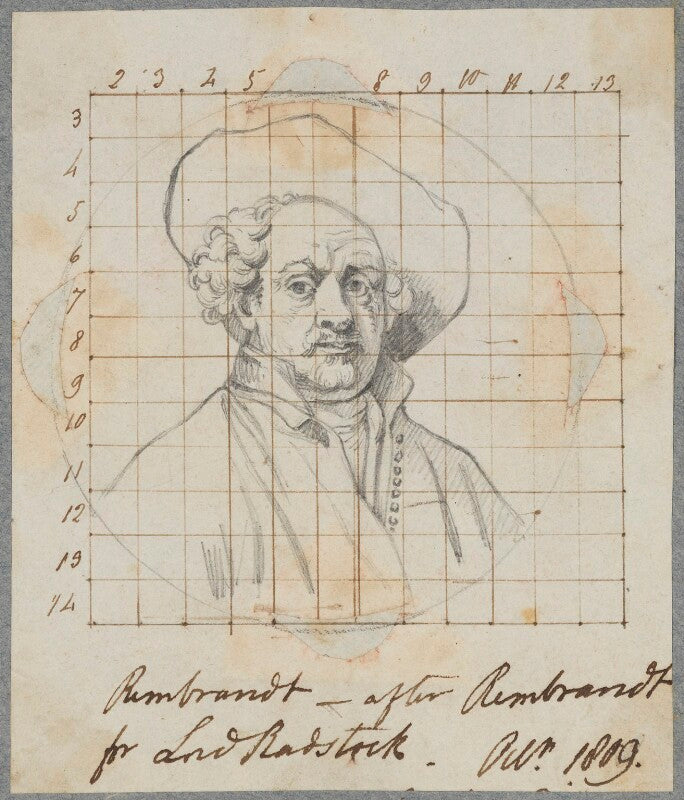 2 3 4 5 8 9 10 11 12 13
3
4
5
6
7
8
9
10
11
12
13
14
Rembrandt – after Rembrandt
for Lord Radstock. Octr. 1809.